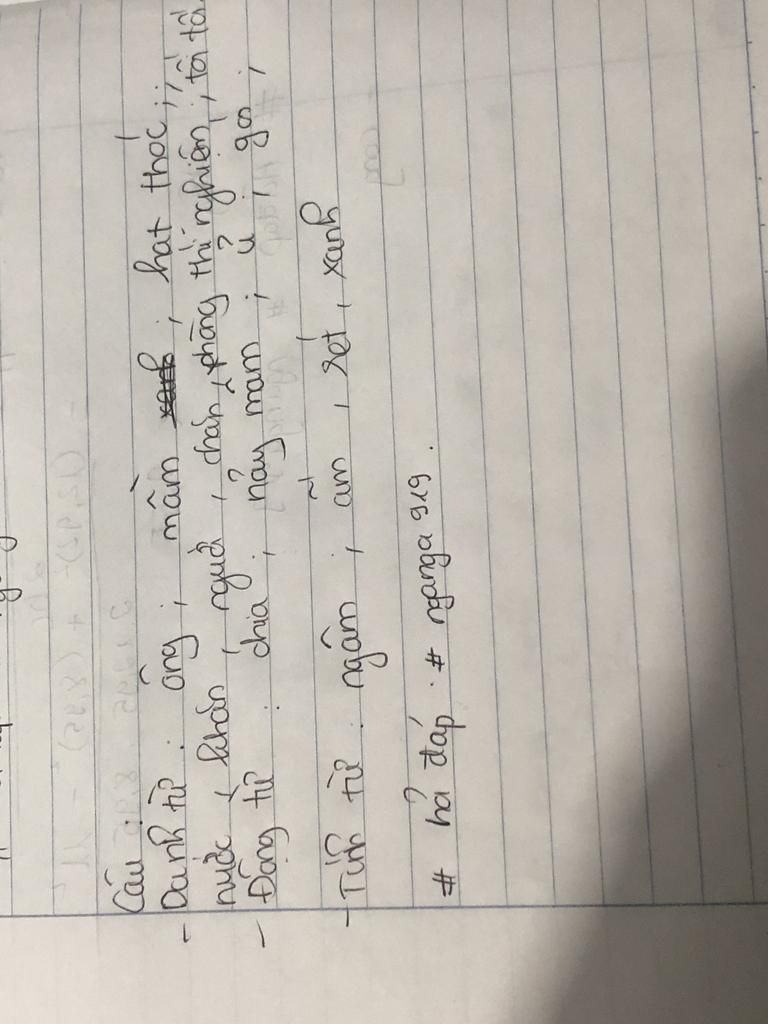 Câu :
- Danh từ : ông ; mầm ; hạt thóc ;
nước , khăn , người , chăn , phòng thí nghiệm ,
- Động từ : chia , nảy mầm ; ủ ; gói ;
- Tính từ : ngâm , ấm , rét , xanh
# hỏi đáp . # nganga 919 .